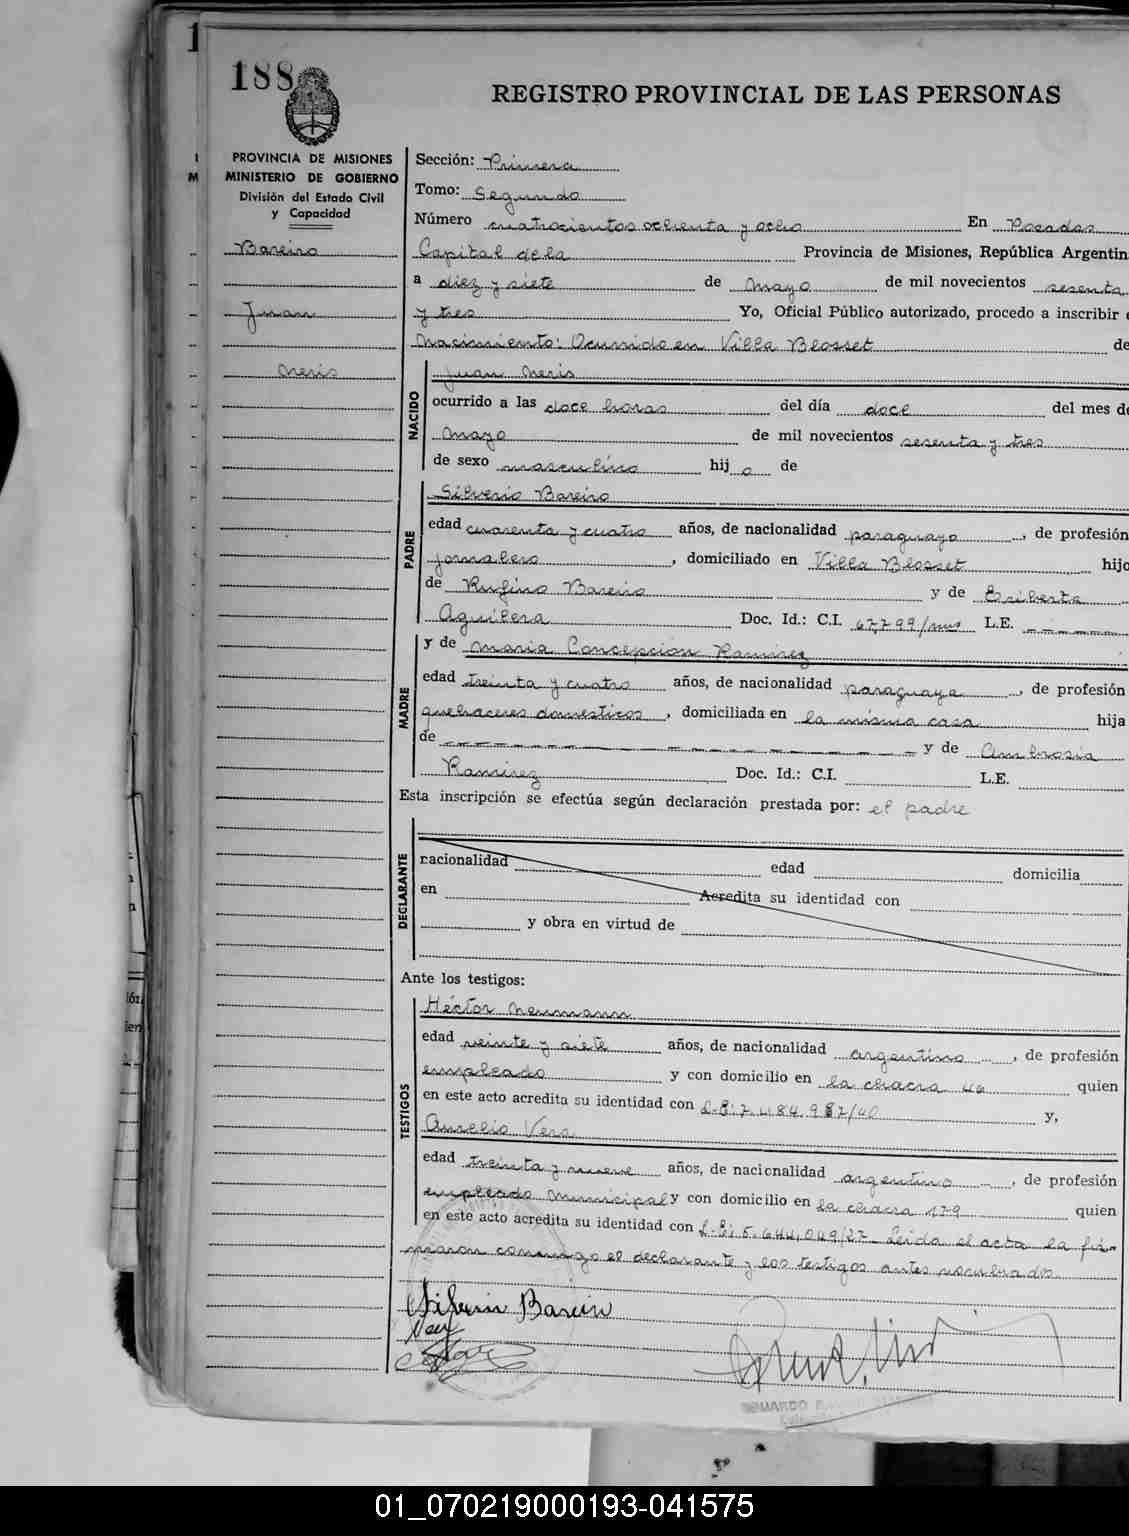 188
REGISTRO PROVINCIAL DE LAS PERSONAS
PROVINCIA DE MISIONES
MINISTERIO DE GOBIERNO
División del Estado Civil
y Capacidad
Bareiro
Juan
Neris
Sección: Primera
Tomo: Segundo
Número cuatrocientos ochenta y ocho En Posadas
Capital de la Provincia de Misiones, República Argentin
a diez y siete de mayo de mil novecientos sesenta
y tres Yo, Oficial Público autorizado, procedo a inscribir e
Nacimiento: Ocurrido en Villa Blosset de
NACIDO
Juan Neris
ocurrido a las doce horas del día doce del mes de
Mayo de mil novecientos sesenta y tres
de sexo masculino hij o de
PADRE
Silverio Bareiro
edad cuarenta y cuatro años, de nacionalidad paraguayo, de profesión
jornalero, domiciliado en Villa Blosset hijo
de Rufino Bareiro y de Eriberta
Aguilera Doc. Id.: C.I. 67,799/mns L.E.
y de Maria Concepcion Ramirez
MADRE
edad treinta y cuatro años, de nacionalidad paraguaya, de profesión
quehaceres domesticos, domiciliada en la misma casa hija
de y de Ambrosia
Ramirez Doc. Id.: C.I. L.E.
Esta inscripción se efectúa según declaración prestada por: el padre
DECLARANTE
nacionalidad edad domicilia
en Acredita su identidad con
y obra en virtud de
Ante los testigos:
TESTIGOS
Héctor Neumann
edad veinte y siete años, de nacionalidad argentino, de profesión
empleado y con domicilio en la chacra 46 quien
en este acto acredita su identidad con L.E: 7.484.987/40 y,
Aurelio Vera
edad treinta y nueve años, de nacionalidad argentino, de profesión
empleado municipal y con domicilio en la chacra 179 quien
en este acto acredita su identidad con L.E: 5.644,049/27 Leida el acta la fir-
maron conmigo el declarante y los testigos antes nombrados.
Silverio Bareiro
01_070219000193-041575